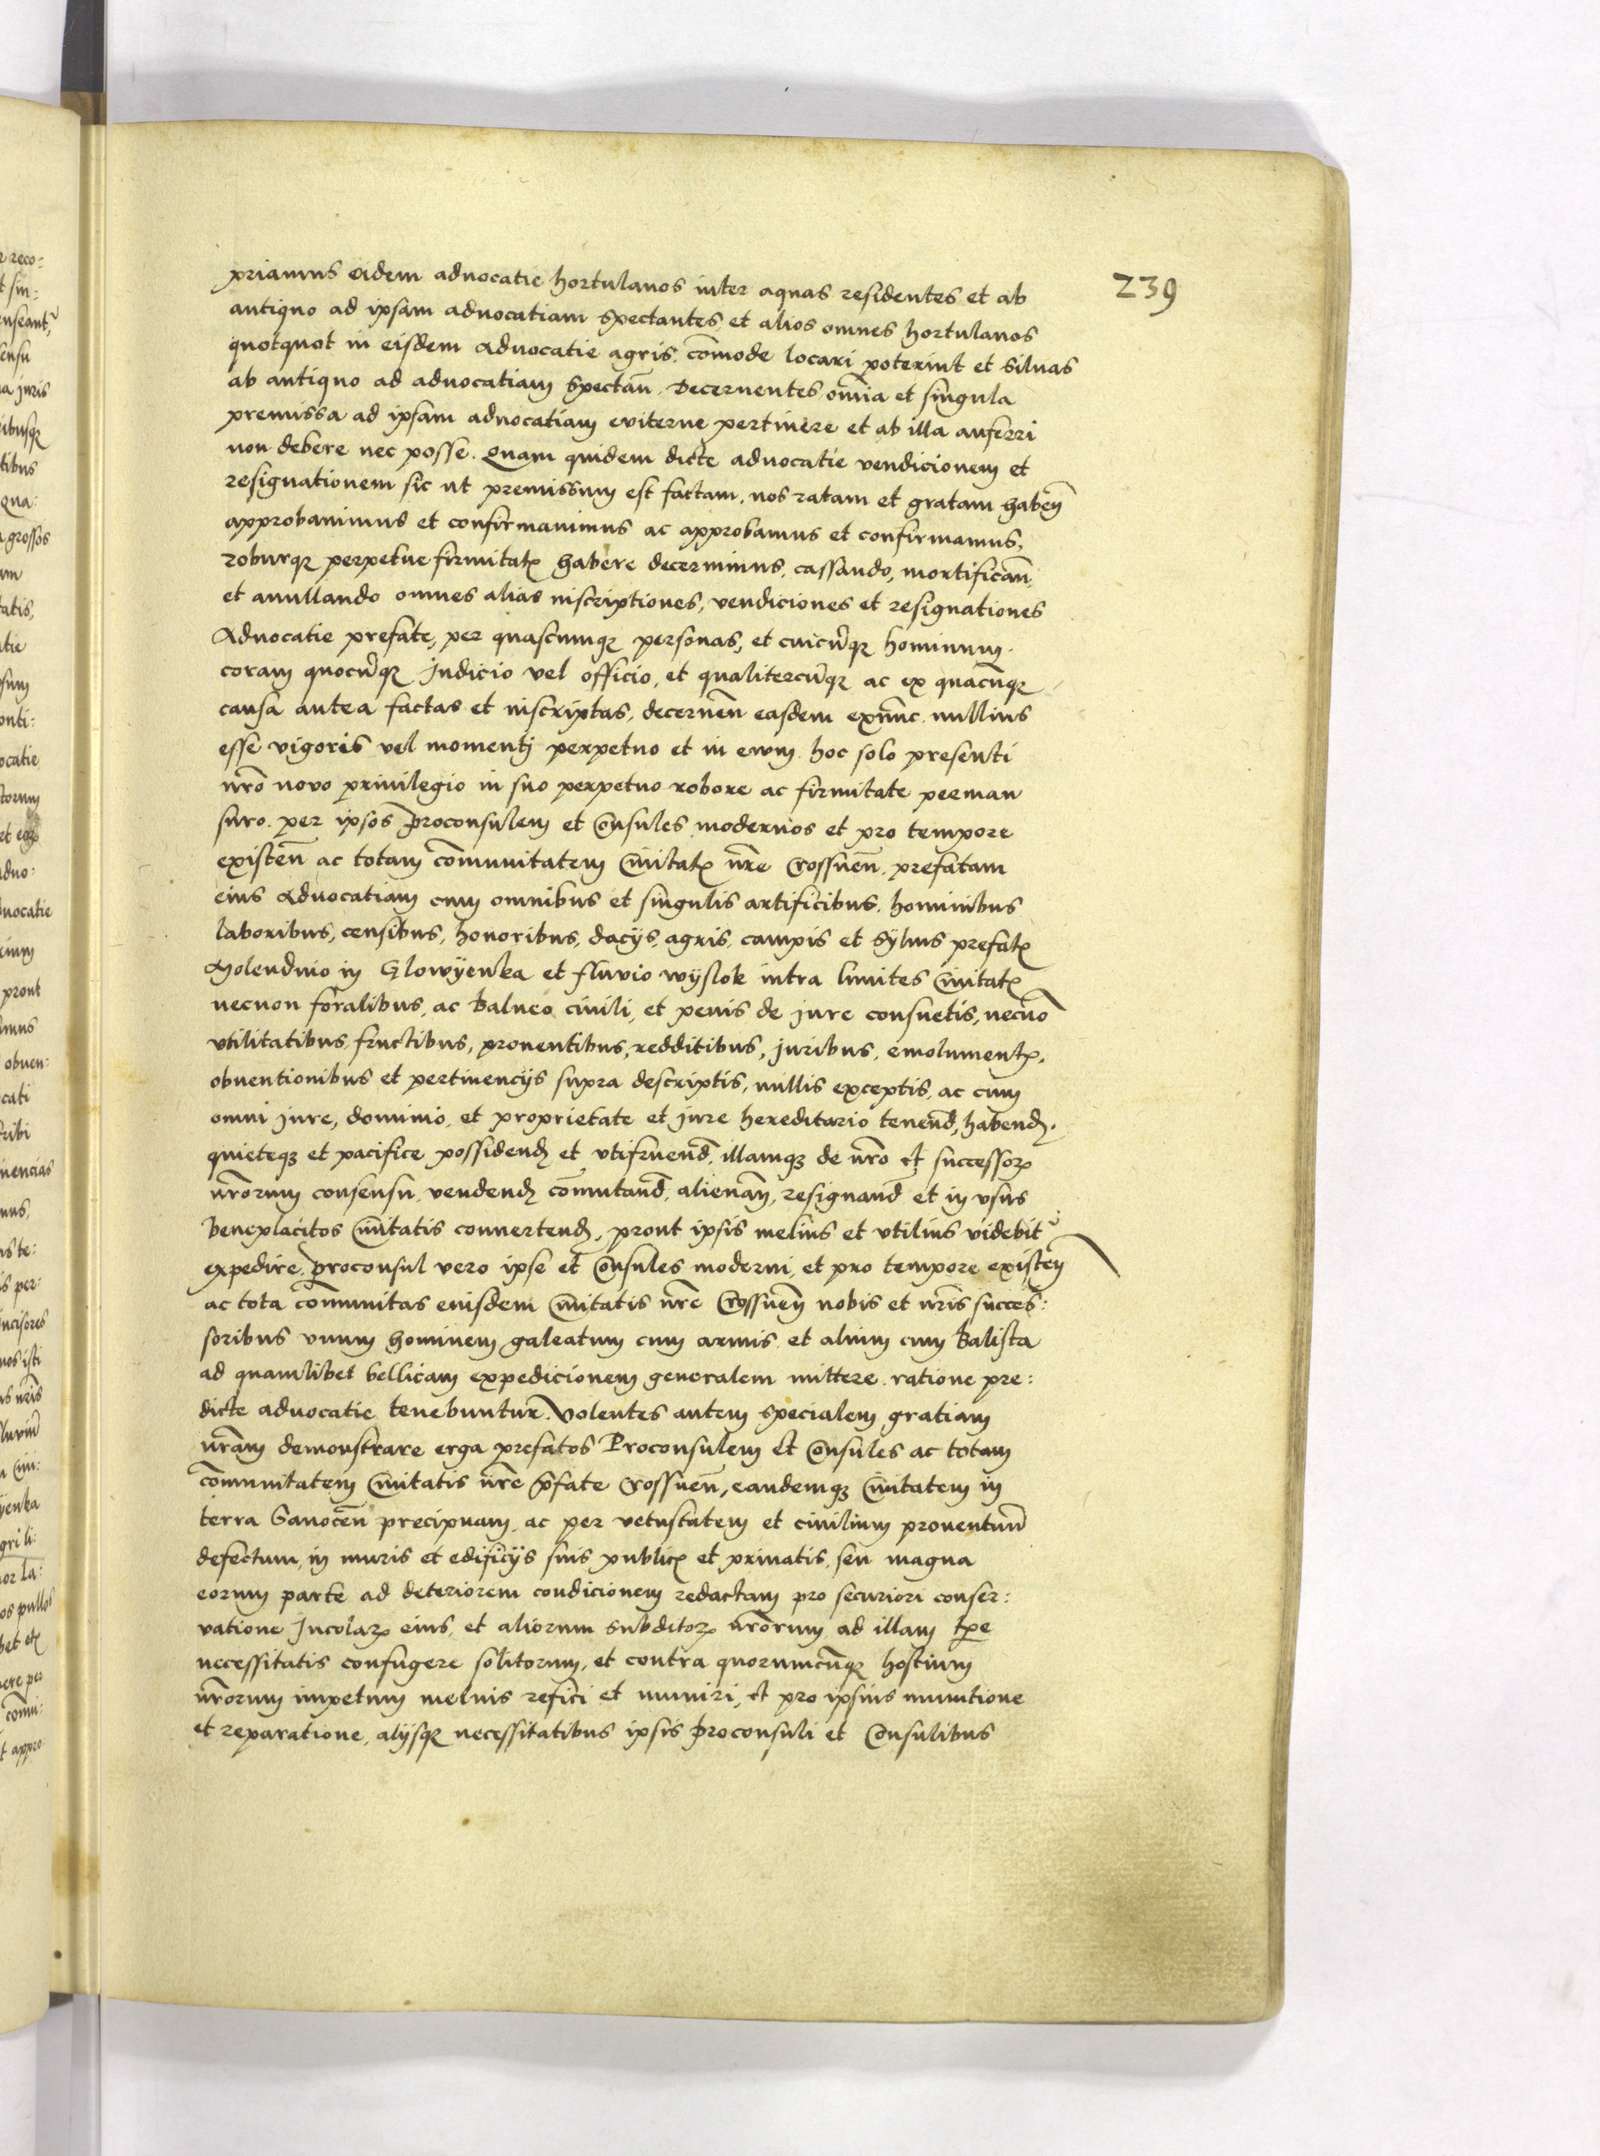 239
priamus eidem advocatie hortulanos inter aquas residentes et ab
antiquo ad ipsam advocatiam spectantes et alios omnes hortulanos
quotquot in eisdem Advocatie agris com̄ode locari poterint et silvas
ab antiquo ad advocatiam spectan̄. Decernentes om̄ia et singula
premissa ad ipsam advocatiam eviterne pertinere et ab illa auferri
non debere nec posse. Quam quidem dicte advocatie vendicionem et
resignationem sic ut premissum est factam, nos ratam et gratam haben̄
approbavimus et confirmavimus ac approbamus et confirmamus,
roburqꝫ perpetue firmitatꝭ habere decernimus, cassando, mortifican̄
et annullando omnes alias inscriptiones, vendiciones et resignationes
Advocatie prefate, per quascumqꝫ personas, et cuicūqꝫ hominum.
coram quocūqꝫ Judicio vel officio, et qualitercūqꝫ ac ex quacūqꝫ
causa antea factas et inscriptas, decernen̄ easdem exnūc nullius
esse vigoris vel momentj perpetuo et in evum. hoc solo presenti
nr̄o novo privilegio in suo perpetuo robore ac firmitate perman
suro. per ipsos Proconsulem et Consules modernos et pro tempore
existen̄ ac totam com̄unitatem Civitatꝭ nr̄e Crossnen̄. prefatam
eius Advocatiam cum omnibus et singulis artificibus, hominibus
laboribus, censibus, honoribus, dacijs, agris, campis et Sylvis prefatꝭ
Molendino in Glowÿenka et fluvio wÿslok intra limites Civitatꝭ
necnon foralibus, ac Balneo civili, et penis de jure consuetis, necnō
utilitatibus, fructibus, proventibus, redditibus, juribus, emolumentꝭ,
obventionibus et pertinencijs supra descriptis, nullis exceptis, ac cum
omni jure, dominio, et proprietate et jure hereditario tenend̄, habend̄.
quieteqꝫ et pacifice possidend̄ et utifruend̄, illamqꝫ de nr̄o et successorꝝ
nr̄orum consensu, vendend̄ com̄utand̄, alienan̄, resignand̄ et in usus
beneplacitos Civitatis convertend̄, prout ipsis melius et utilius videbitʳ
expedire. Proconsul vero ipse et Consules moderni, et pro tempore existen̄
ac tota com̄unitas eiusdem Civitatis nr̄e Crossnen̄ nobis et nr̄is succes:
soribus unum hominem galeatum cum armis et alium cum Balista
ad quamlibet bellicam expedicionem generalem mittere ratione pre:
dicte advocatie tenebuntur. Volentes autem specialem gratiam
nr̄am demonstrare erga prefatos Proconsulem Et Consules ac totam
com̄unitatem Civitatis nr̄e p̄fate Crossnen̄, eandemqꝫ Civitatem in
terra Sanocen̄ precipuam, ac per vetustatem et civilium proventuū
defectum, in muris et edificijs suis publicꝭ et privatis, seu magna
eorum parte ad deteriorem condicionem redactam pro securiori conser:
vatione Jncolarꝝ eius, et aliorum subditorꝝ nr̄orum ad illam tp̄e
necessitatis confugere solitorum, et contra quorumcūqꝫ hostium
nr̄orum impetum melius refici et muniri, et pro ipsius munitione
et reparatione, alijsqꝫ necessitatibus ipsis Proconsuli et Consulibus